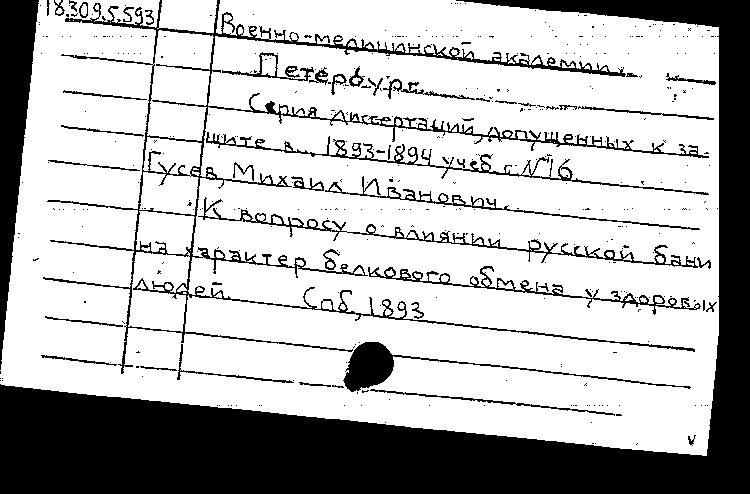 18.309.5.593
Военно-медицинской академии.
Петербург.
Серия диссертаций, допущенных к за-
щите в... 1893-1894 учеб. г. № 16.
Гусев, Михаил Иванович.
К вопросу о влиянии русской бани
на характер белкового обмена у здоровых
людей. Спб., 1893